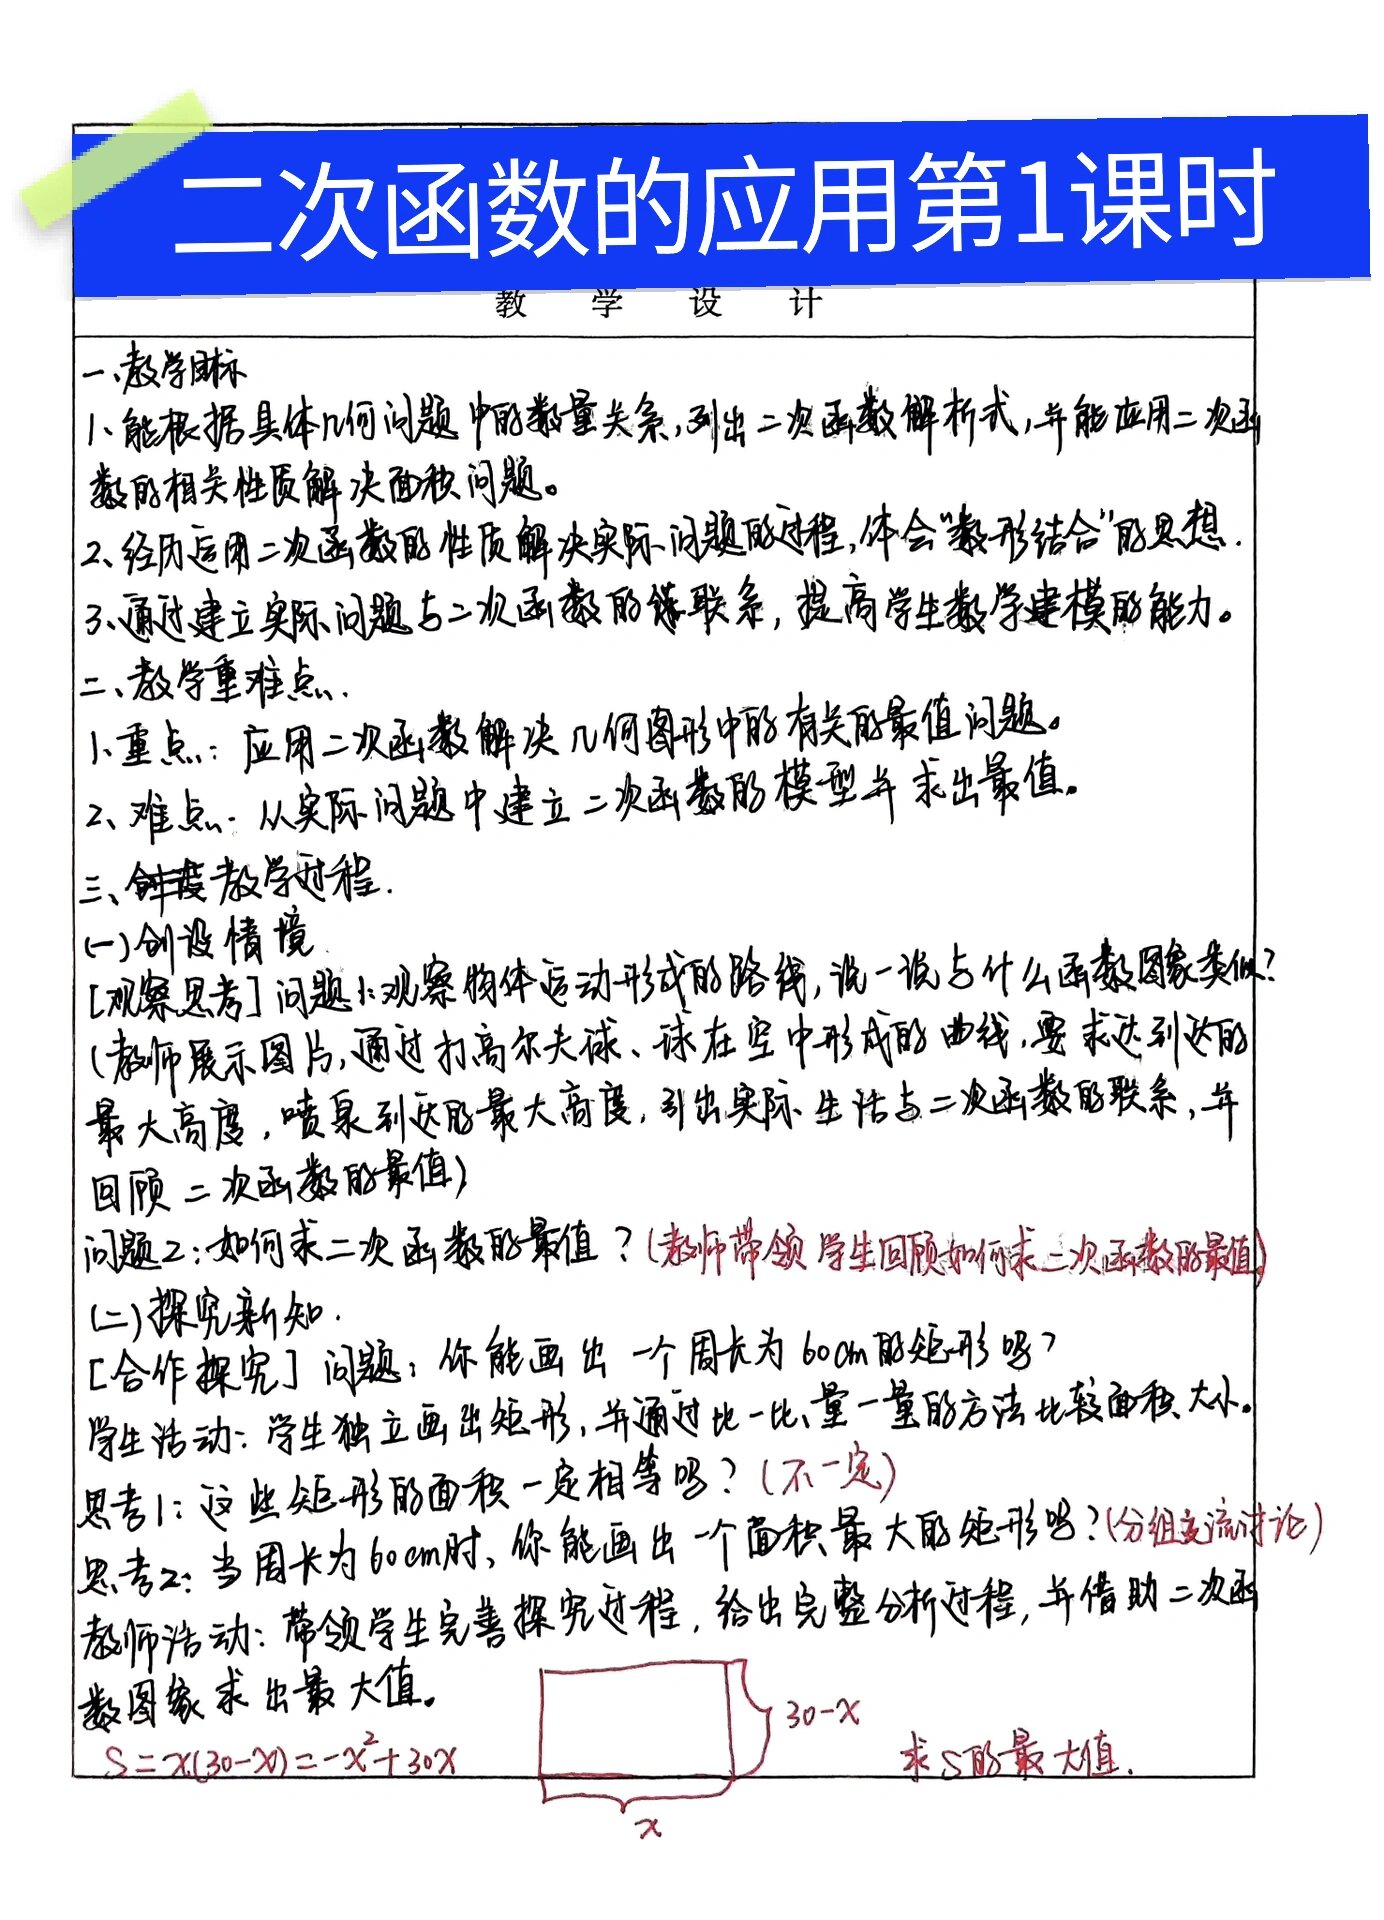 二次函数的应用第1课时
教 学 设 计
一、教学目标
1、能根据具体几何问题中的数量关系,列出二次函数解析式,并能应用二次函
数的相关性质解决面积问题。
2、经历运用二次函数的性质解决实际问题的过程,体会“数形结合”的思想.
3、通过建立实际问题与二次函数的联系,提高学生数学建模的能力。
二、教学重难点.
1、重点:应用二次函数解决几何图形中的有关的最值问题。
2、难点:从实际问题中建立二次函数的模型并求出最值。
三、教学过程.
(一)创设情境
[观察思考]问题1:观察物体运动形成的路线,说一说与什么函数图象类似?
(教师展示图片,通过打高尔夫球、球在空中形成的曲线,要求达到达的
最大高度,喷泉到达的最大高度,引出实际生活与二次函数的联系,并
回顾二次函数的最值)
问题2:如何求二次函数的最值?(教师带领学生回顾如何求二次函数的最值)
(二)探究新知.
[合作探究]问题:你能画出一个周长为60cm的矩形吗?
学生活动:学生独立画出矩形,并通过比一比、量一量的方法比较面积大小。
思考1:这些矩形的面积一定相等吗?(不一定)
思考2:当周长为60cm时,你能画出一个面积最大的矩形吗?(分组交流讨论)
教师活动:带领学生完善探究过程,给出完整分析过程,并借助二次函
数图象求出最大值。
30-x
S=x(30-x)=-x²+30x
求S的最大值.
x